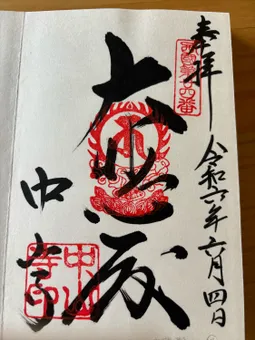 奉拝
西国第廿四番
令和六年六月四日
大悲殿
中山寺
中山寺